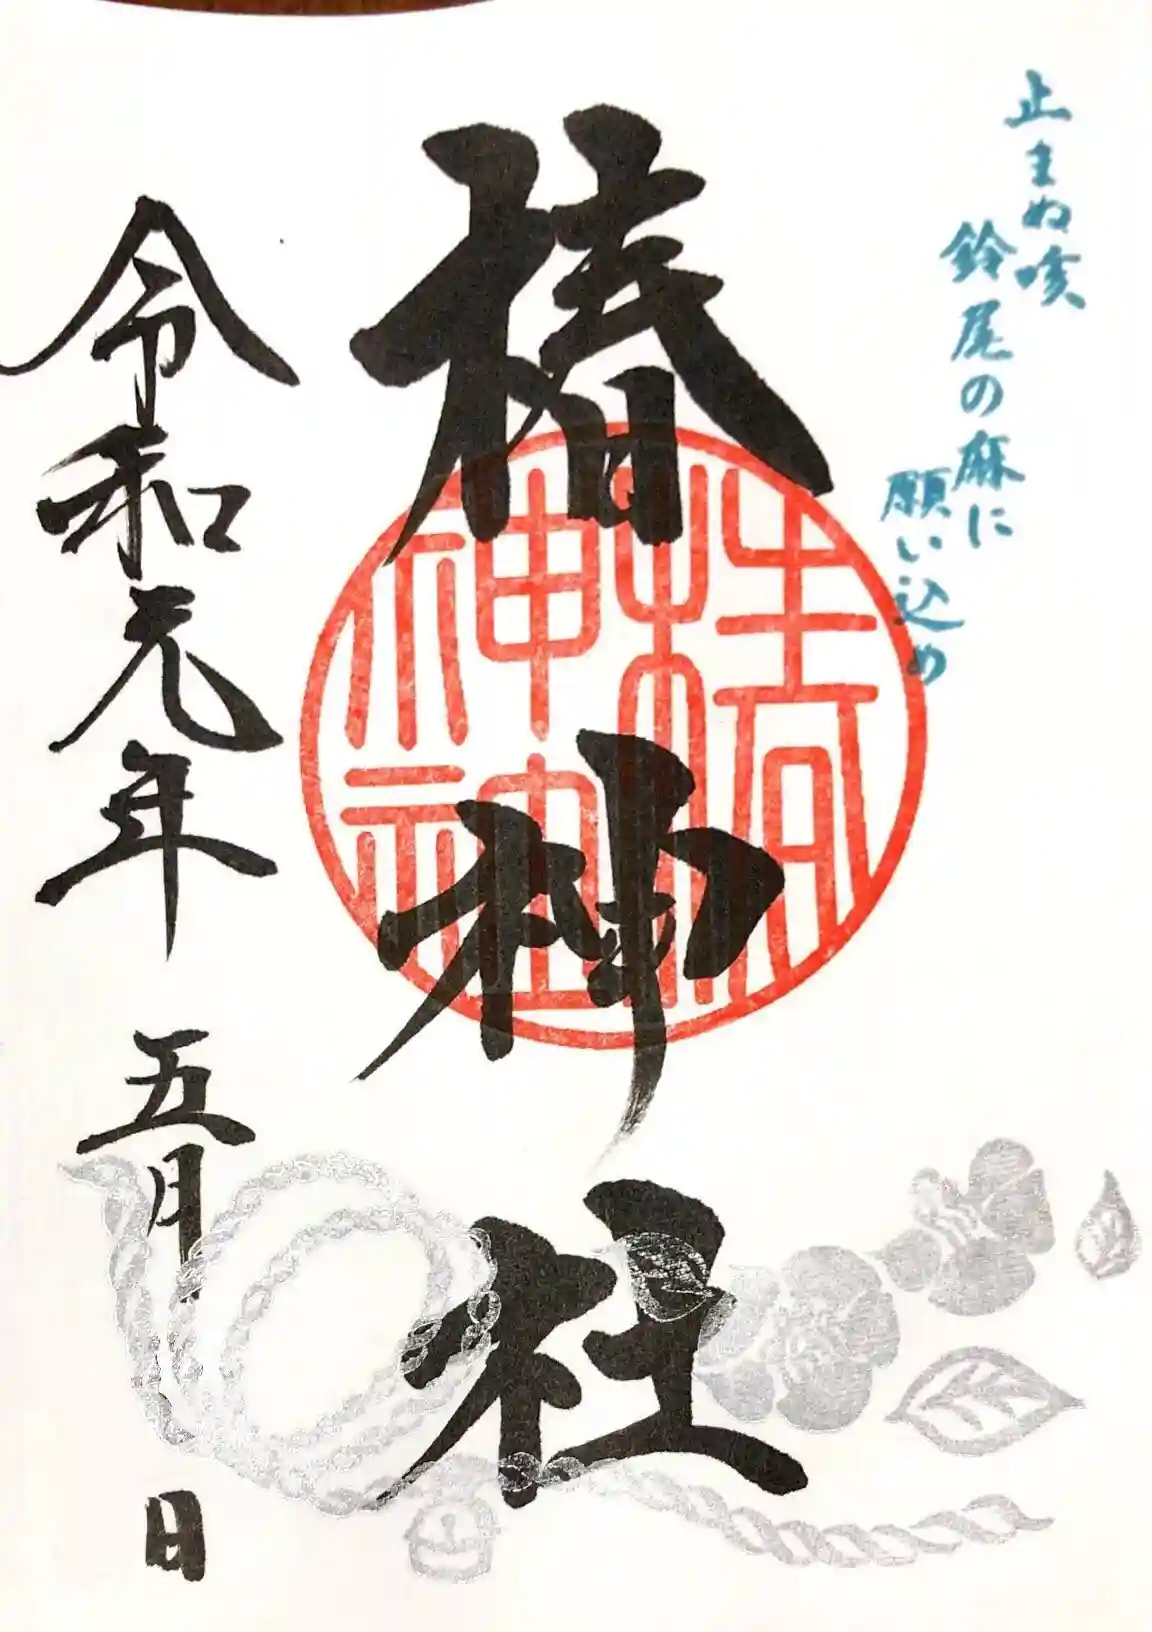 止まぬ咳
鈴尾の麻に
願い込め
椿神社
椿神社
令和元年 五月 日